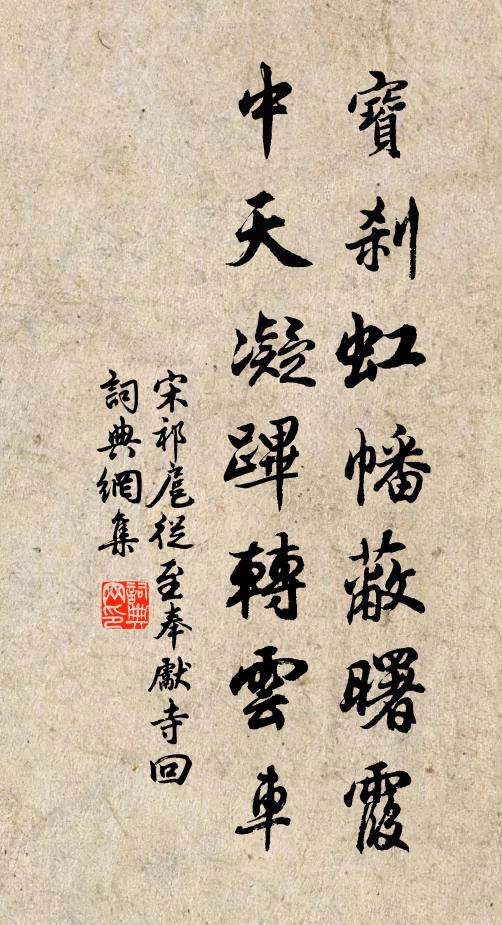 寶剎虹幡蔽曙霞
中天凝蹕轉雲車
宋祁扈從至奉獻寺回
詞典網集
詞典網印